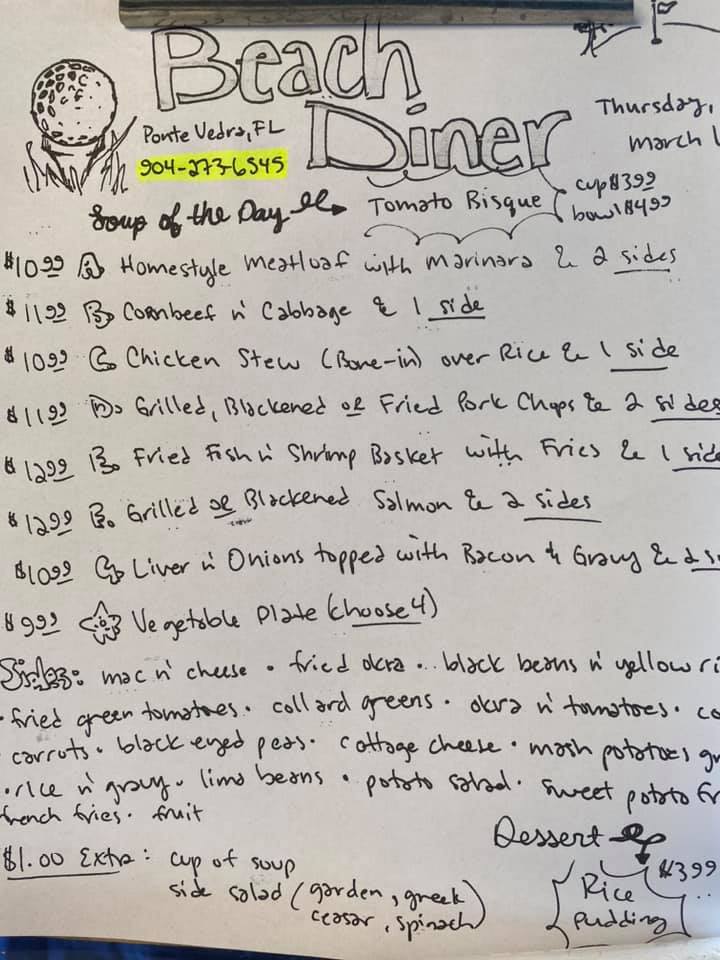 Beach
Diner
Ponte Vedra, FL
904-273-6545
Thursday,
March
Soup of the Day → Tomato Bisque
cup $3.99
bowl $4.99
$10.99 A Homestyle Meatloaf with Marinara & 2 sides
$11.99 B. Cornbeef n' Cabbage & 1 side
$10.99 C. Chicken Stew (Bone-in) over Rice & 1 side
$11.99 D. Grilled, Blackened or Fried Pork Chops & 2 sides
$12.99 E. Fried Fish n' Shrimp Basket with Fries & 1 side
$12.99 F. Grilled or Blackened Salmon & 2 sides
$10.99 G. Liver n' Onions topped with Bacon & Gravy & 2 s
$9.99 Vegetable Plate (choose 4)
Sides: mac n' cheese • fried okra • black beans n' yellow ri
• fried green tomatoes • collard greens • okra n' tomatoes • co
carrots • black eyed peas • cottage cheese • mash potatoes gr
• rice n' gravy • lima beans • potato salad • sweet potato fr
french fries • fruit
$1.00 Extra: cup of soup
side salad (garden, greek
ceasar, spinach)
Dessert
Rice
Pudding
$3.99